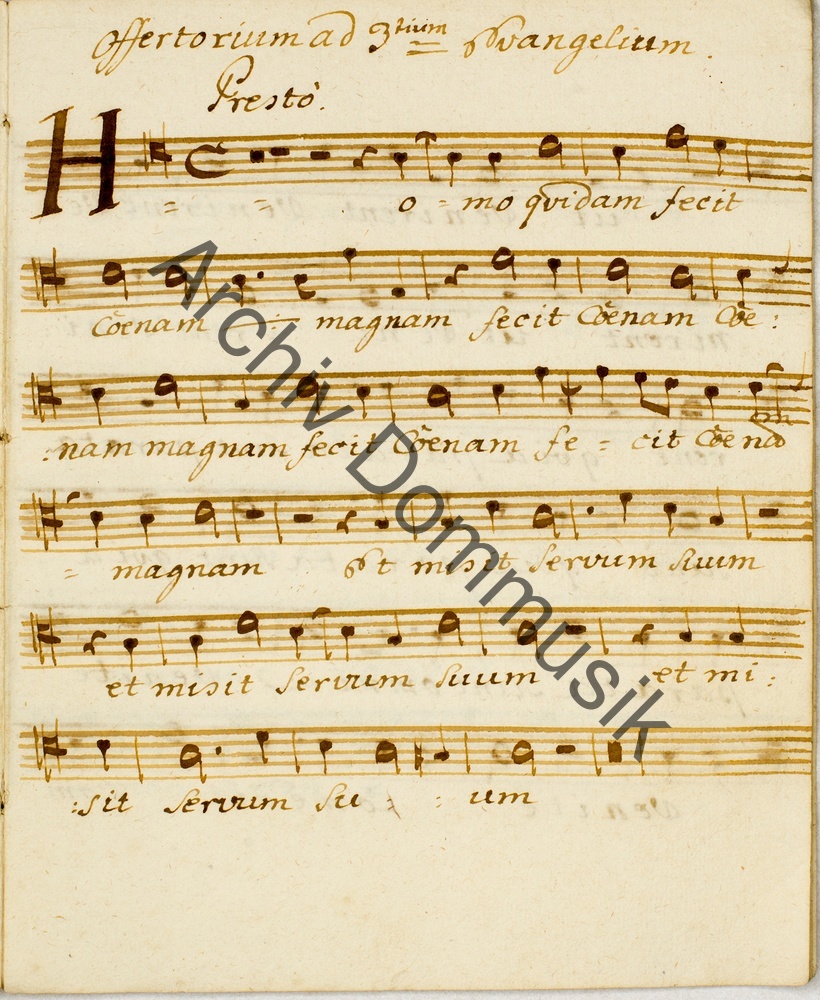 Offertorium ad 3tium Evangelium.
Presto.
H = = o = mo quidam fecit
Coenam magnam fecit Coenam Coe:
:nam magnam fecit Coenam fe = cit Coena
= magnam Et misit servum suum
et misit servum suum et mi:
:sit servum su : : um
Archiv Dommusik